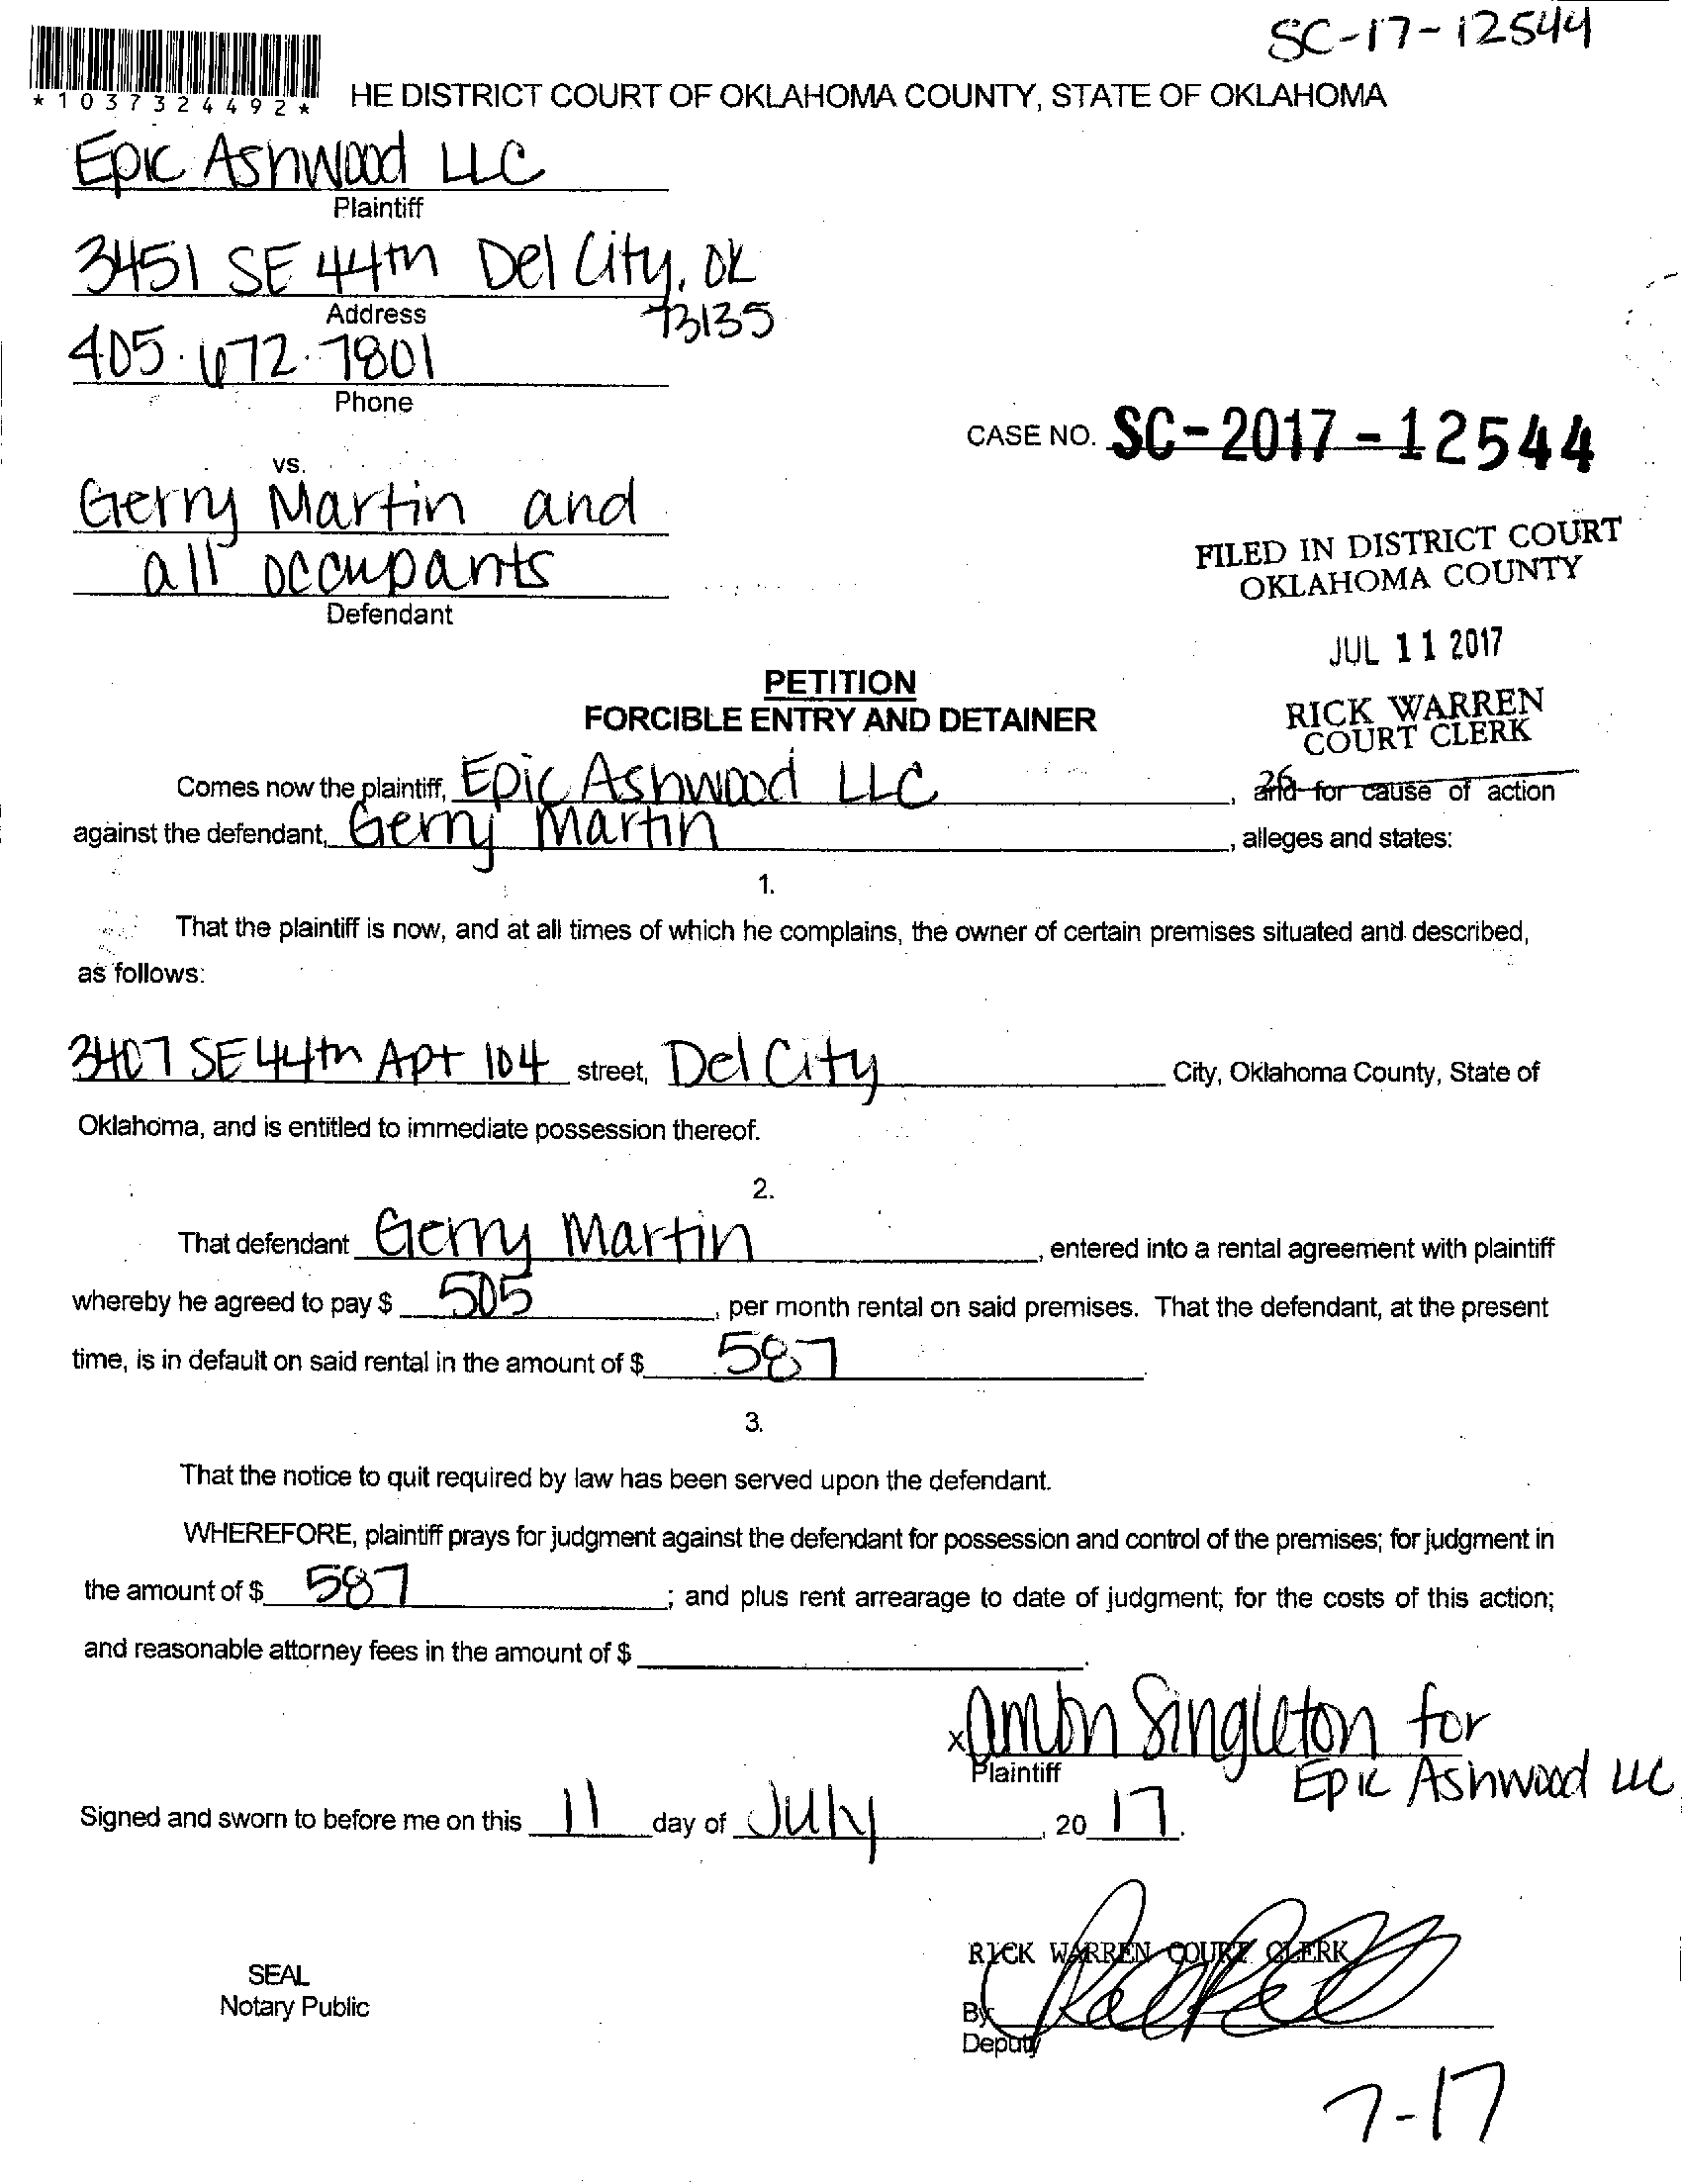 SC-17-12544
*1037324492*
HE DISTRICT COURT OF OKLAHOMA COUNTY, STATE OF OKLAHOMA
Epic Ashwood LLC
Plaintiff
3451 SE 44th Del City, OK
73135
Address
405.672.7801
Phone
CASE NO. SC-2017-12544
vs.
Gerry Martin and
all occupants
Defendant
FILED IN DISTRICT COURT
OKLAHOMA COUNTY
JUL 11 2017
RICK WARREN
COURT CLERK
26
PETITION
FORCIBLE ENTRY AND DETAINER
Comes now the plaintiff, Epic Ashwood LLC, and for cause of action
against the defendant, Gerry Martin, alleges and states:
1.
That the plaintiff is now, and at all times of which he complains, the owner of certain premises situated and described,
as follows:
3407 SE 44th Apt 104 street, Del City City, Oklahoma County, State of
Oklahoma, and is entitled to immediate possession thereof.
2.
That defendant Gerry Martin, entered into a rental agreement with plaintiff
whereby he agreed to pay $ 505, per month rental on said premises. That the defendant, at the present
time, is in default on said rental in the amount of $ 587.
3.
That the notice to quit required by law has been served upon the defendant.
WHEREFORE, plaintiff prays for judgment against the defendant for possession and control of the premises; for judgment in
the amount of $ 587; and plus rent arrearage to date of judgment; for the costs of this action;
and reasonable attorney fees in the amount of $ .
x Singleton for
Plaintiff Epic Ashwood LLC
Signed and sworn to before me on this 11 day of July, 20 17.
RICK WARREN COURT CLERK
SEAL
Notary Public
By
Deputy
7-17